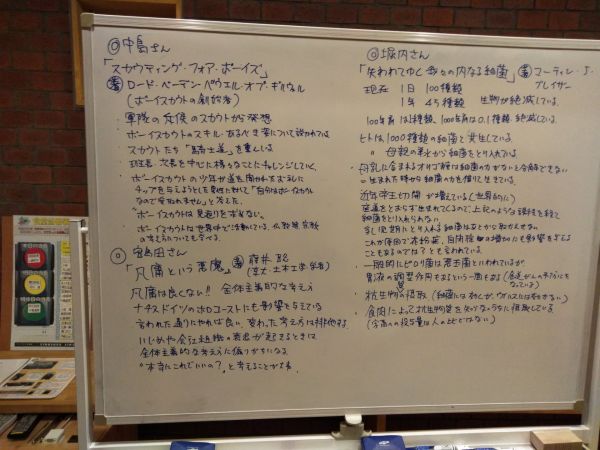 ◎中島さん
「スカウティング・フォア・ボーイズ」
著 ロード・ベーデン・パウエル・オブ・ギルウェル
(ボーイスカウトの創始者)
軍隊の兵使のスカウトから発想
ボーイスカウトのスキル・あるべき姿について説かれている
スカウトたち「騎士道」を重んじる
班長、次長を中心に様々なことにチャレンジしていく
ボーイスカウトの少年が道を聞かれた
チップを与えようとした男性に対して「自分はボーイスカウト
なので受取れません」と答えた。
ボーイスカウトは見返りを求めない。
ボーイスカウトは世界中で活動している。仏教等、宗教
の考え方についても学べる。
◎宮島さん
「凡庸という悪魔」著 藤井 聡
(京大・土木工学(学者)
凡庸は良くない!! 全体主義的な考え方
ナチスドイツのホロコーストにも影響を与えている
言われた通りにやれば良い、変わった考え方は排他する
いじめや会社組織の衰退が起きるときは
全体主義的な考え方に偏りがちになる
"本当にこれでいいの?"と考えることが大事。
◎堀内さん
「失われてゆく我々の内なる細菌」著 マーティン・J・
ブレイザー
現在 1日 100種類
1年 4万種類 生物が絶滅している。
100年前は1種類、1000年前は0.1種類 絶滅している。
ヒトは1000種類の細菌と共生している。
母親の
母乳に含まれるオリゴ糖は細菌の力がないと分解できない
=生まれた時から細菌の力を借りて生きている。
近年帝王切開が増えている(世界的に)
産道をとおらず生まれてくるので、上記のような過程を経て
細菌をとり入れられない
乳児期にとり入れる細菌はあとから取れません。
これが原因で花粉症、自閉症の増加にも影響を与える
こともあるのでは?とも言われている。
一般的にピロリ菌は悪玉菌といわれているが
胃液の調整作用もあるという一面もある(食道がんの予防にも
なっている)
抗生物質の摂取(細菌には効くが、ウイルスには効かない)
食肉によって抗生物質を知らないうちに摂取している
(家畜への投与量は人の比ではない)